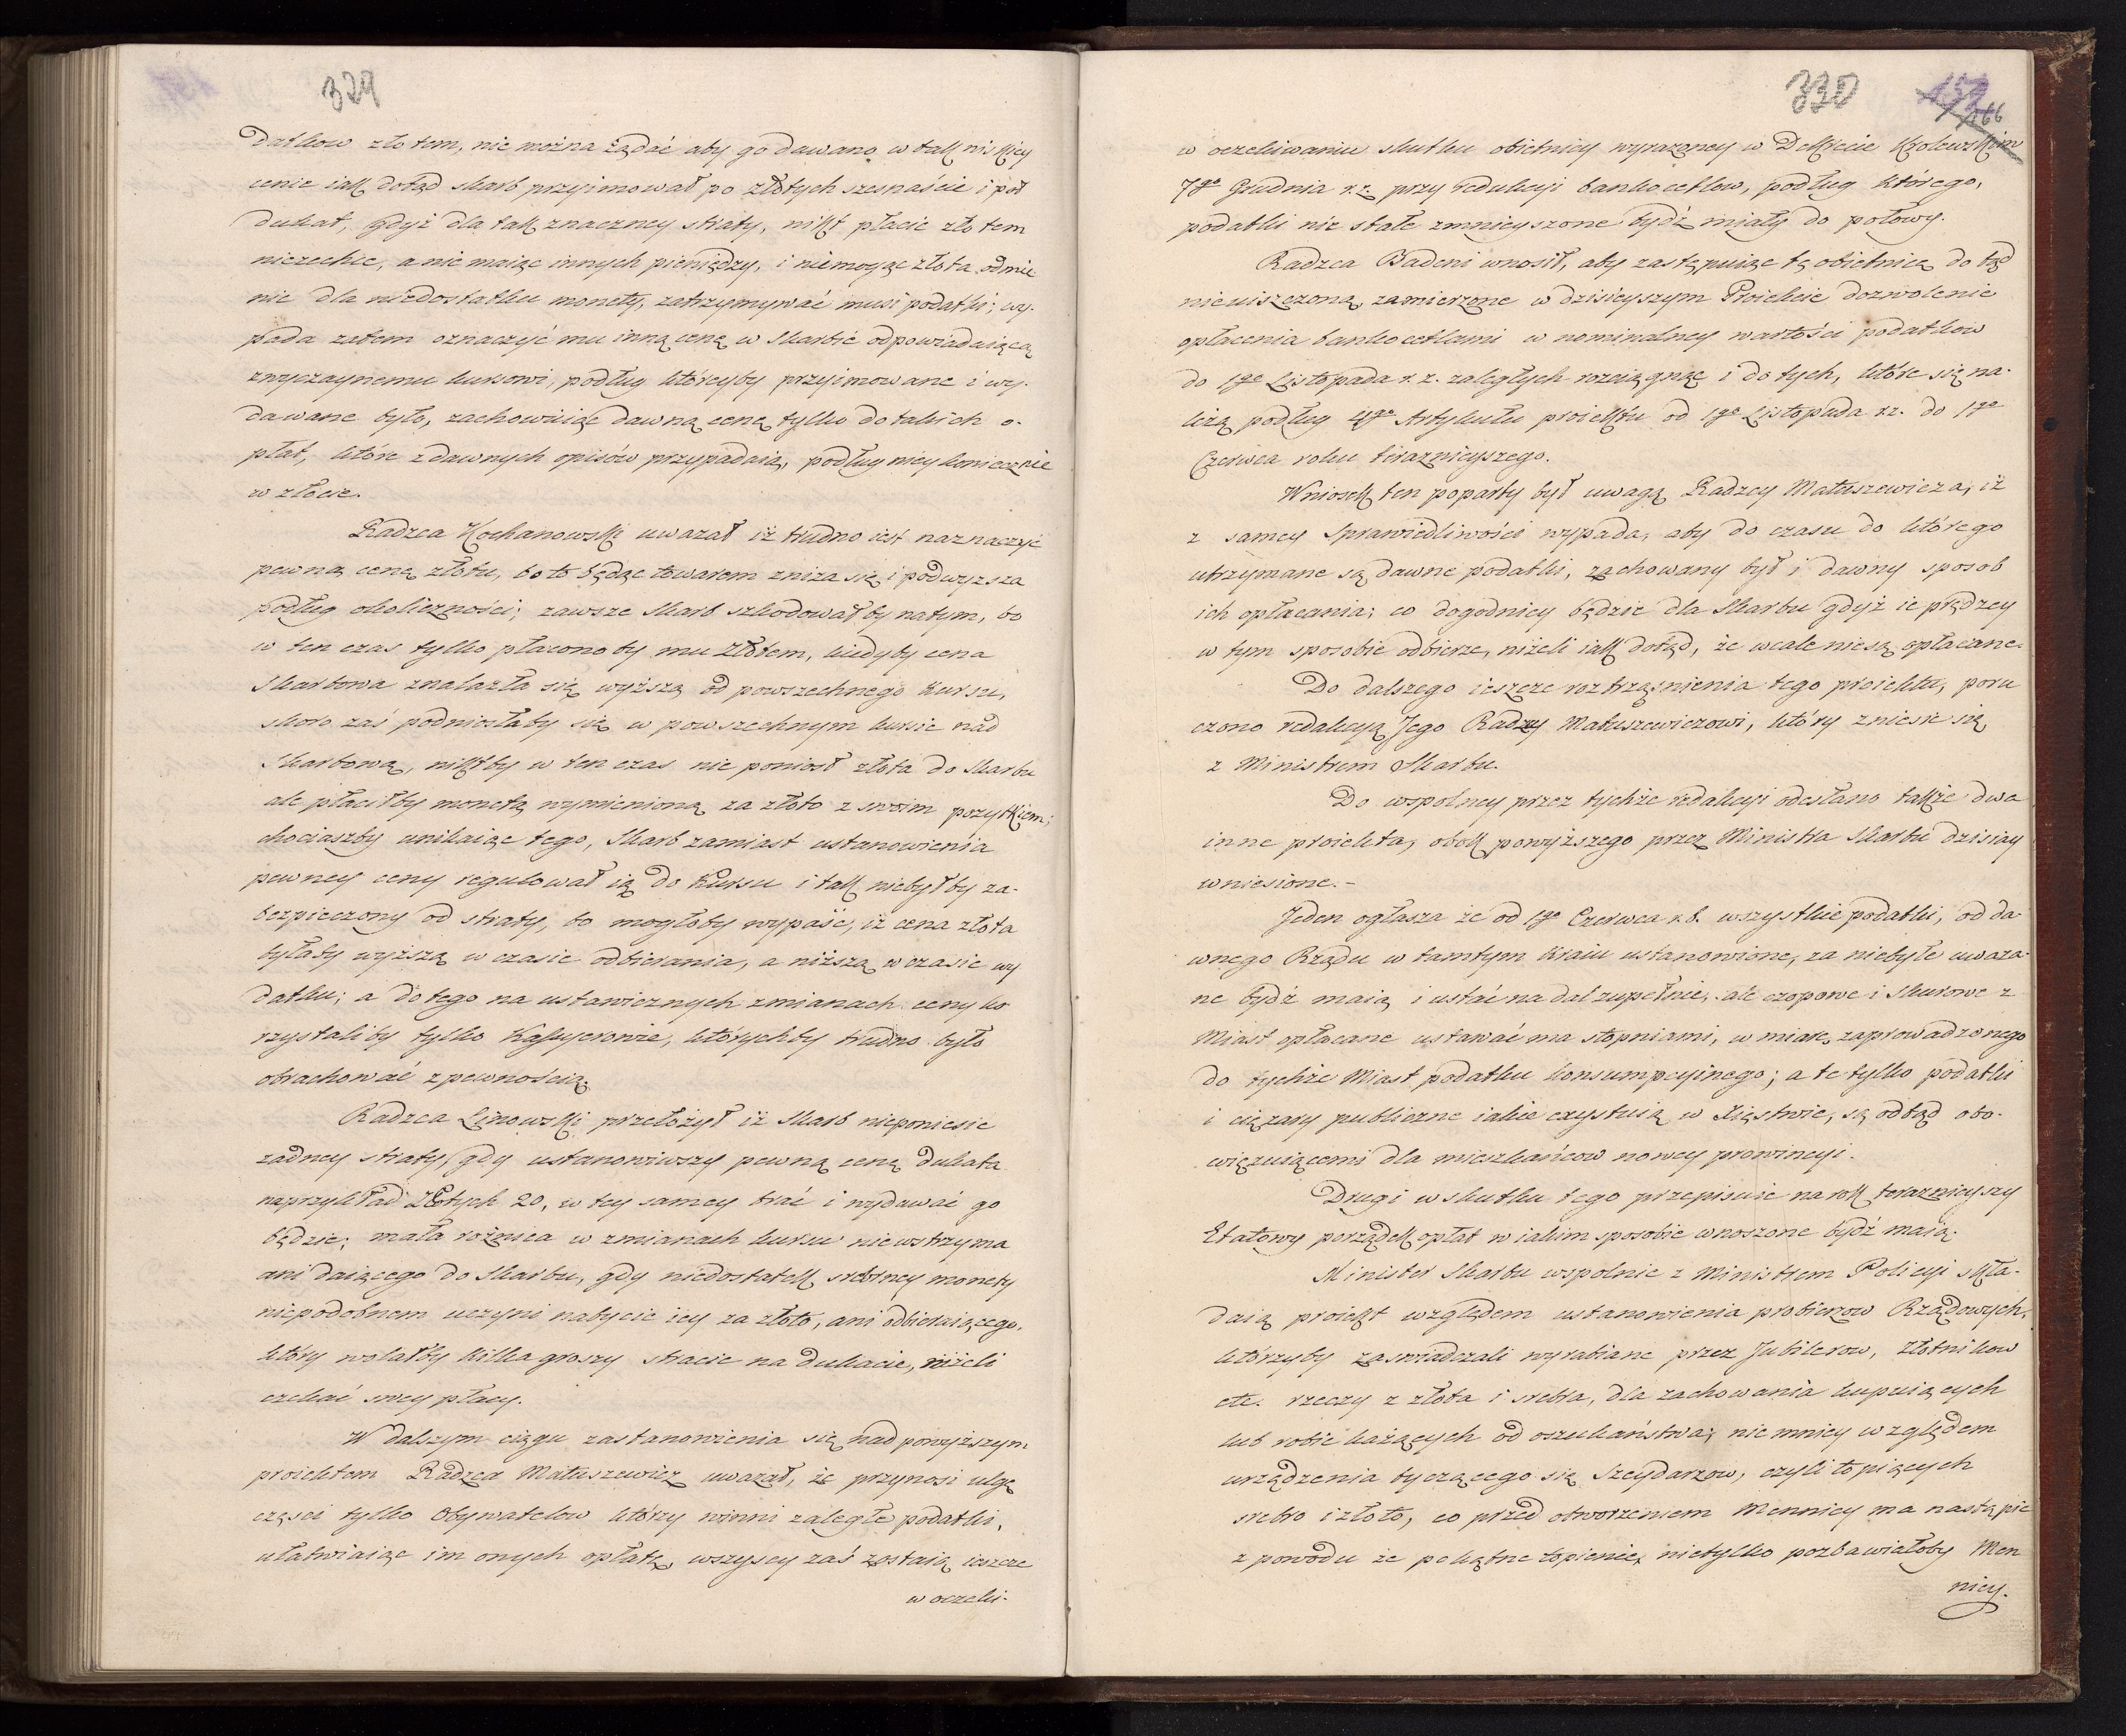 329
datkow złotem, nie można żądać aby go dawano w tak niskiey
cenie iak dotąd skarb przyimował po złłotych szesnaście i pół
dukat, gdyż dla tak znaczney straty, nikt płacic złotem
niezechce, a nie maiąc innych pieniędzy, i niemogąc złota odmie
nic dla niedostatku monety, zatrzymywać musi podatki; wy-
pada zatem oznaczyć mu inną cenę w Skarbie odpowiadaiącą
zwyczaynemu kursowi, podług któreyby przyimowane i wy-
dawane było, zachowuiąc dawną cenę tylko do takich o-
płat, które z dawnych opisów przypadaią, podług niey koniecznie
w złocie.
Radzca Kochanowski uwazał iż trudno iest naznaczyć
pewną cenę złotu, bo to będąc towarem zniza się i podwyzsza
podług okoliczności; zawsze Skarb szkodował by natym, bo
w ten czas tylko płacono by mu złotem, kiedyby cena
Skarbowa znalazła się wyższą od powszechnego kursu,
skoro zaś podniosłaby się w powszechnym kursie nad
Skarbową, niktby w ten czas nie poniosł złota do Skarbu
ale płaciłby monetą wymienioną za złoto z swoim pozytkiem;
chociaszby unikaiąc tego, Skarb zamiast ustanowienia
pewney ceny regulował ią do Kursu i tak niebyłby za-
bezpieczony od straty, bo mogłoby wypaść, iż cena złota
byłaby wyższą w czasie odbierania, a niższą w czasie wy
datku; a do tego na ustawicznych zmianach ceny ko
rzystaliby tylko Kassyerowie, którychby trudno było
obrachować z pewnością.
Radzca Linowski przełożył iż Skarb nieponiesie
zadney straty, gdy ustanowiwszy pewną cenę dukata
naprzykład Złłotych 20, w tey samey brać i wydawać go
będzie; mała rożnica w zmianach kursu niewstrzyma
ani daiącego do Skarbu, gdy niedostatek srebrney monety
niepodobnem uczyni nabycie iey za złoto, ani odbieraiącego,
który wolałby kilka groszy stracic na dukacie, niżeli
czekać swey płacy.
W dalszym ciągu zastanowienia się nad powyższym
proiektem Radzca Matuszewicz uwazał, że przynosi ulgę
części tylko Obywatelow którzy winni zaległe podatki,
ułatwiaiąc im onych opłatę, wszyscy zaś zostaią ieszcze
w oczeki-
330
166
w oczekiwaniu skutku obietnicy wyrazoney w Dekrecie Krolewskim
7go Grudnia r. z. przy redukcyi bankocetlow, podług którego,
podatki nie stałe zmnieyszone bydź miały do połowy.
Radzca Badeni wnosił, aby zastępuiąc tę obietnicę do tąd
nieuiszczoną, zamierzone w dzisieyszym Proiekcie dozwolenie
opłacenia bankocetlami w nominalney wartości podatkow
do 1go Listopada r. z. zaległych rozciągnąc i do tych, które się na-
leżą podług 4go Artykułu proiektu od 1go Listopada r.z. do 1go
Czerwca roku terazniejszego.
Wniosek ten poparty był uwagą Radzcy Matuszewicza, iż
z samey Sprawiedliwości wypada, aby do czasu do którego
utrzymane są dawne podatki, zachowany był i dawny sposob
ich opłacania; co dogodniey będzie dla Skarbu gdyż ie prędzey
w tym sposobie odbierze, niżeli iak dotąd, że wcale niesą opłacane.
Do dalszego ieszcze roztrząśnienia tego proiektu, poru
czono redakcyą Jego Radzcy Matuszewiczowi, który zniesie się
z Ministrem Skarbu.
Do wspolney przez tychże redakcyi odesłano także dwa
inne proiekta, obok powyższego przez Ministra Skarbu dzisiay
wniesione.-
Jeden ogłasza że od 1go Czerwca r. b. wszystkie podatki, od da
wnego Rządu w tamtym kraiu ustanowione, za niebyłe uwaza-
ne bydź maią i ustać na dal zupełnie, ale czopowe i skurowe z
Miast opłacane ustawać ma stopniami, w miarę zaprowadzonego
do tychże Miast podatku konsumpcyinego; a te tylko podatki
i ciężary publiczne iakie exystuią w Xięstwie, są odtąd obo-
więzuiącemi dla mieszkańcow nowey prowincyi.
Drugi w skutku tego przepisuie na rok terazniejszy
Etatowy porządek opłat w iakim sposobie wnoszone bydź maią.
Minister Skarbu wspolnie z Ministrem Policyi skła-
daią proiekt względem ustanowienia probierzow Rządowych,
którzyby zaswiadczali wyrabiane przez Jubilerow, złotnikow
etc. rzeczy z złota i srebra, dla zachowania kupuiących
lub robić każących od oszukaństwa; nie mniey względem
urządzenia tyczącego się Szeydarzow, czyli topiących
srebro i złoto, co przed otworzeniem Mennicy ma nastąpic
z powodu że pokątne topienie, nietylko pozbawiałoby Men
nicy.